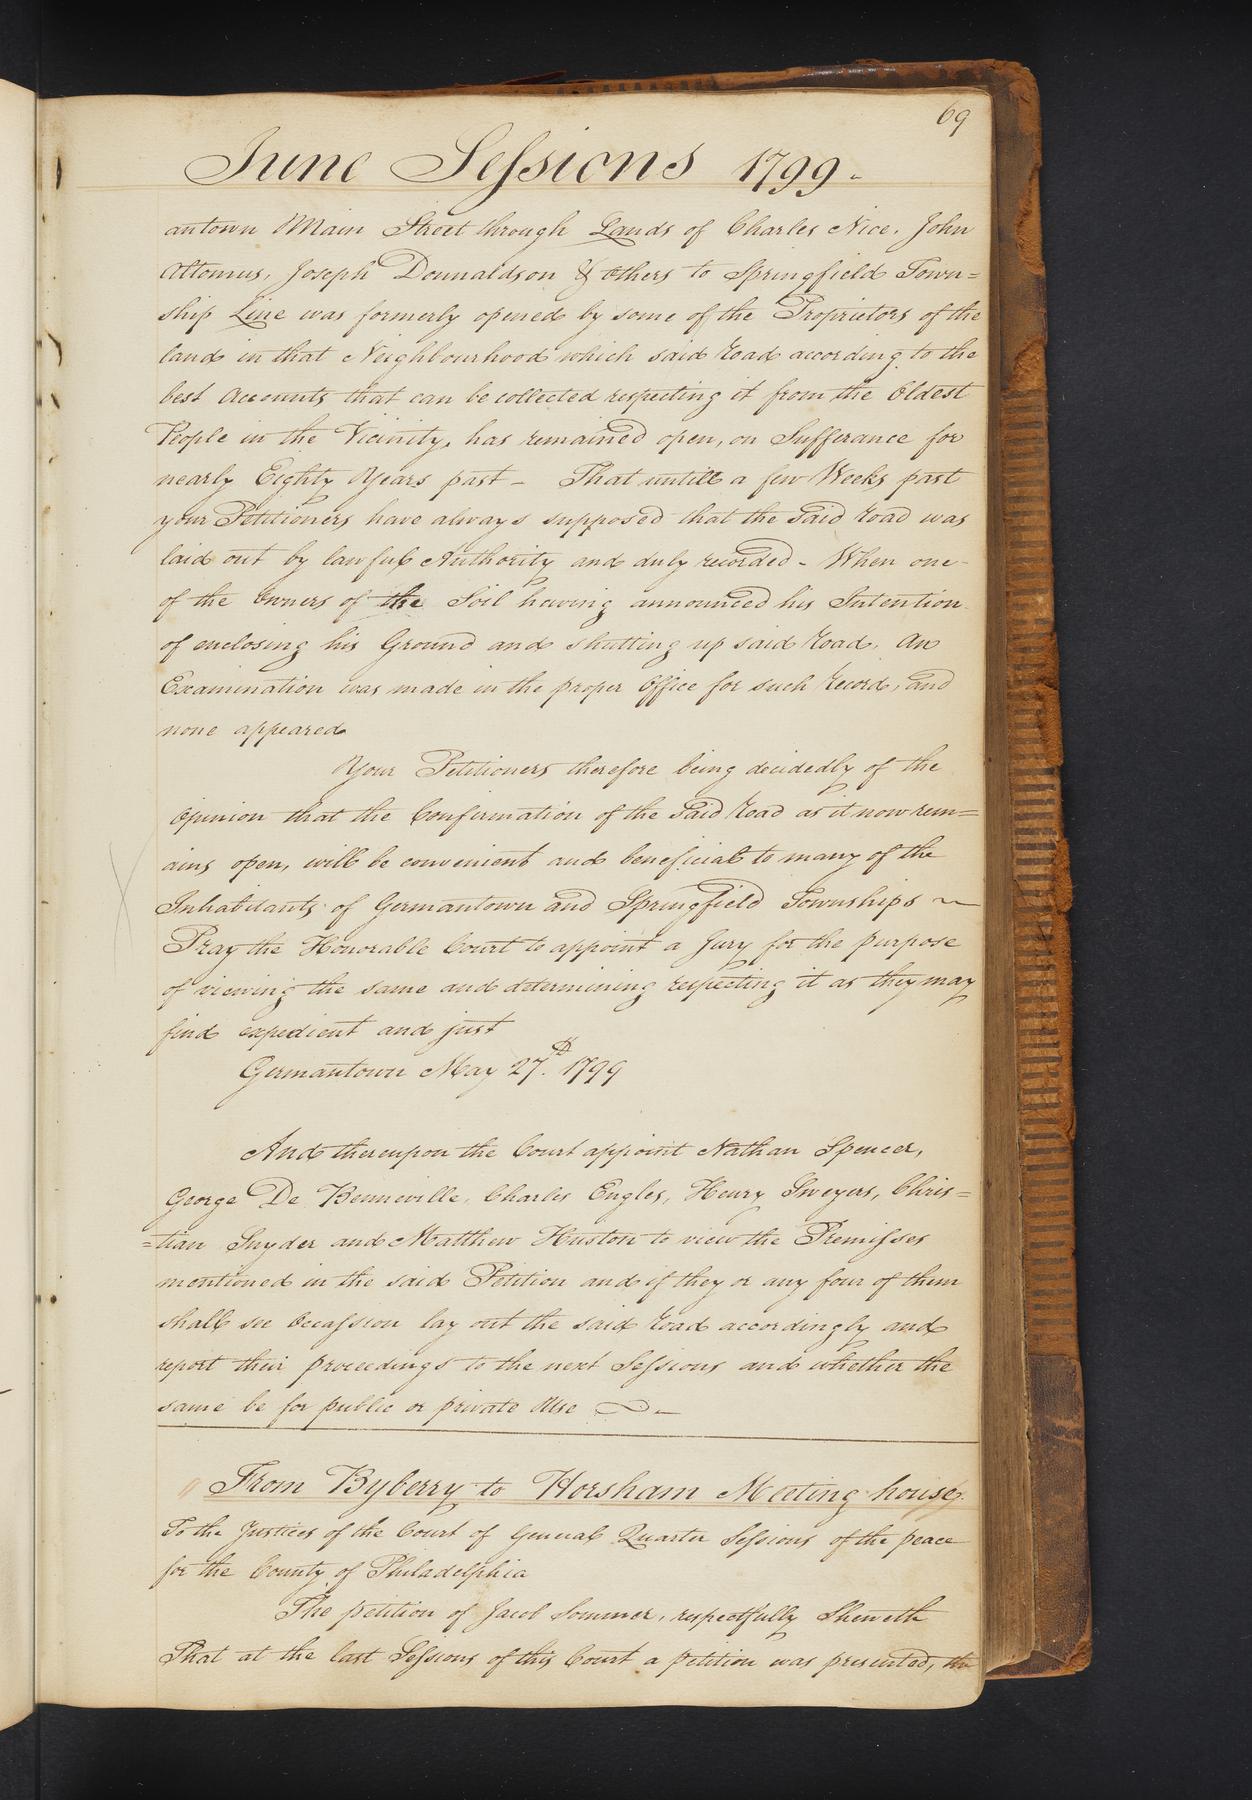 69
June Sessions 1799.
antown Main Street through Lands of Charles Nice, John
Altomus, Joseph Dounaldson & others to Springfield Town=
ship Line was formerly opened by some of the Proprietors of the
land in that Neighbourhood which said Road according to the
best Accounts that can be collected respecting it from the Oldest
People in the Vicinity, has remained open, on Sufferance for
nearly Eighty Years past - That untill a few Weeks past
your Petitioners have always supposed that the said Road was
laid out by lawful Authority and duly recorded - When one
of the Owners of the Soil having announced his Intention
of enclosing his Ground and shutting up said Road, An
Examination was made in the proper Office for such Record, and
none appeared
Your Petitioners therefore being decidedly of the
Opinion that the Confirmation of the said Road as it now rem=
ains open, will be convenient and beneficial to many of the
Inhabitants of Germantown and Springfield Townships ~
Pray the Honorable Court to appoint a Jury for the purpose
of viewing the same and determining respecting it as they may
find expedient and just
Germantown May 27th. 1799
And thereupon the Court appoint Nathan Spencer,
George De Benneville, Charles Engles, Henry Sweyers, Chris=
=tian Snyder and Matthew Huston to view the Premisses
mentioned in the said Petition and if they or any four of them
shall see Occassion lay out the said Road accordingly and
report their proceedings to the next Sessions and whether the
same be for public or private Use
From Byberry to Horsham Meeting house
To the Justices of the Court of General Quarter Sessions of the peace
for the County of Philadelphia
The petition of Jacob Sommer, respectfully Sheweth
That at the last Sessions of this Court a petition was presented, the